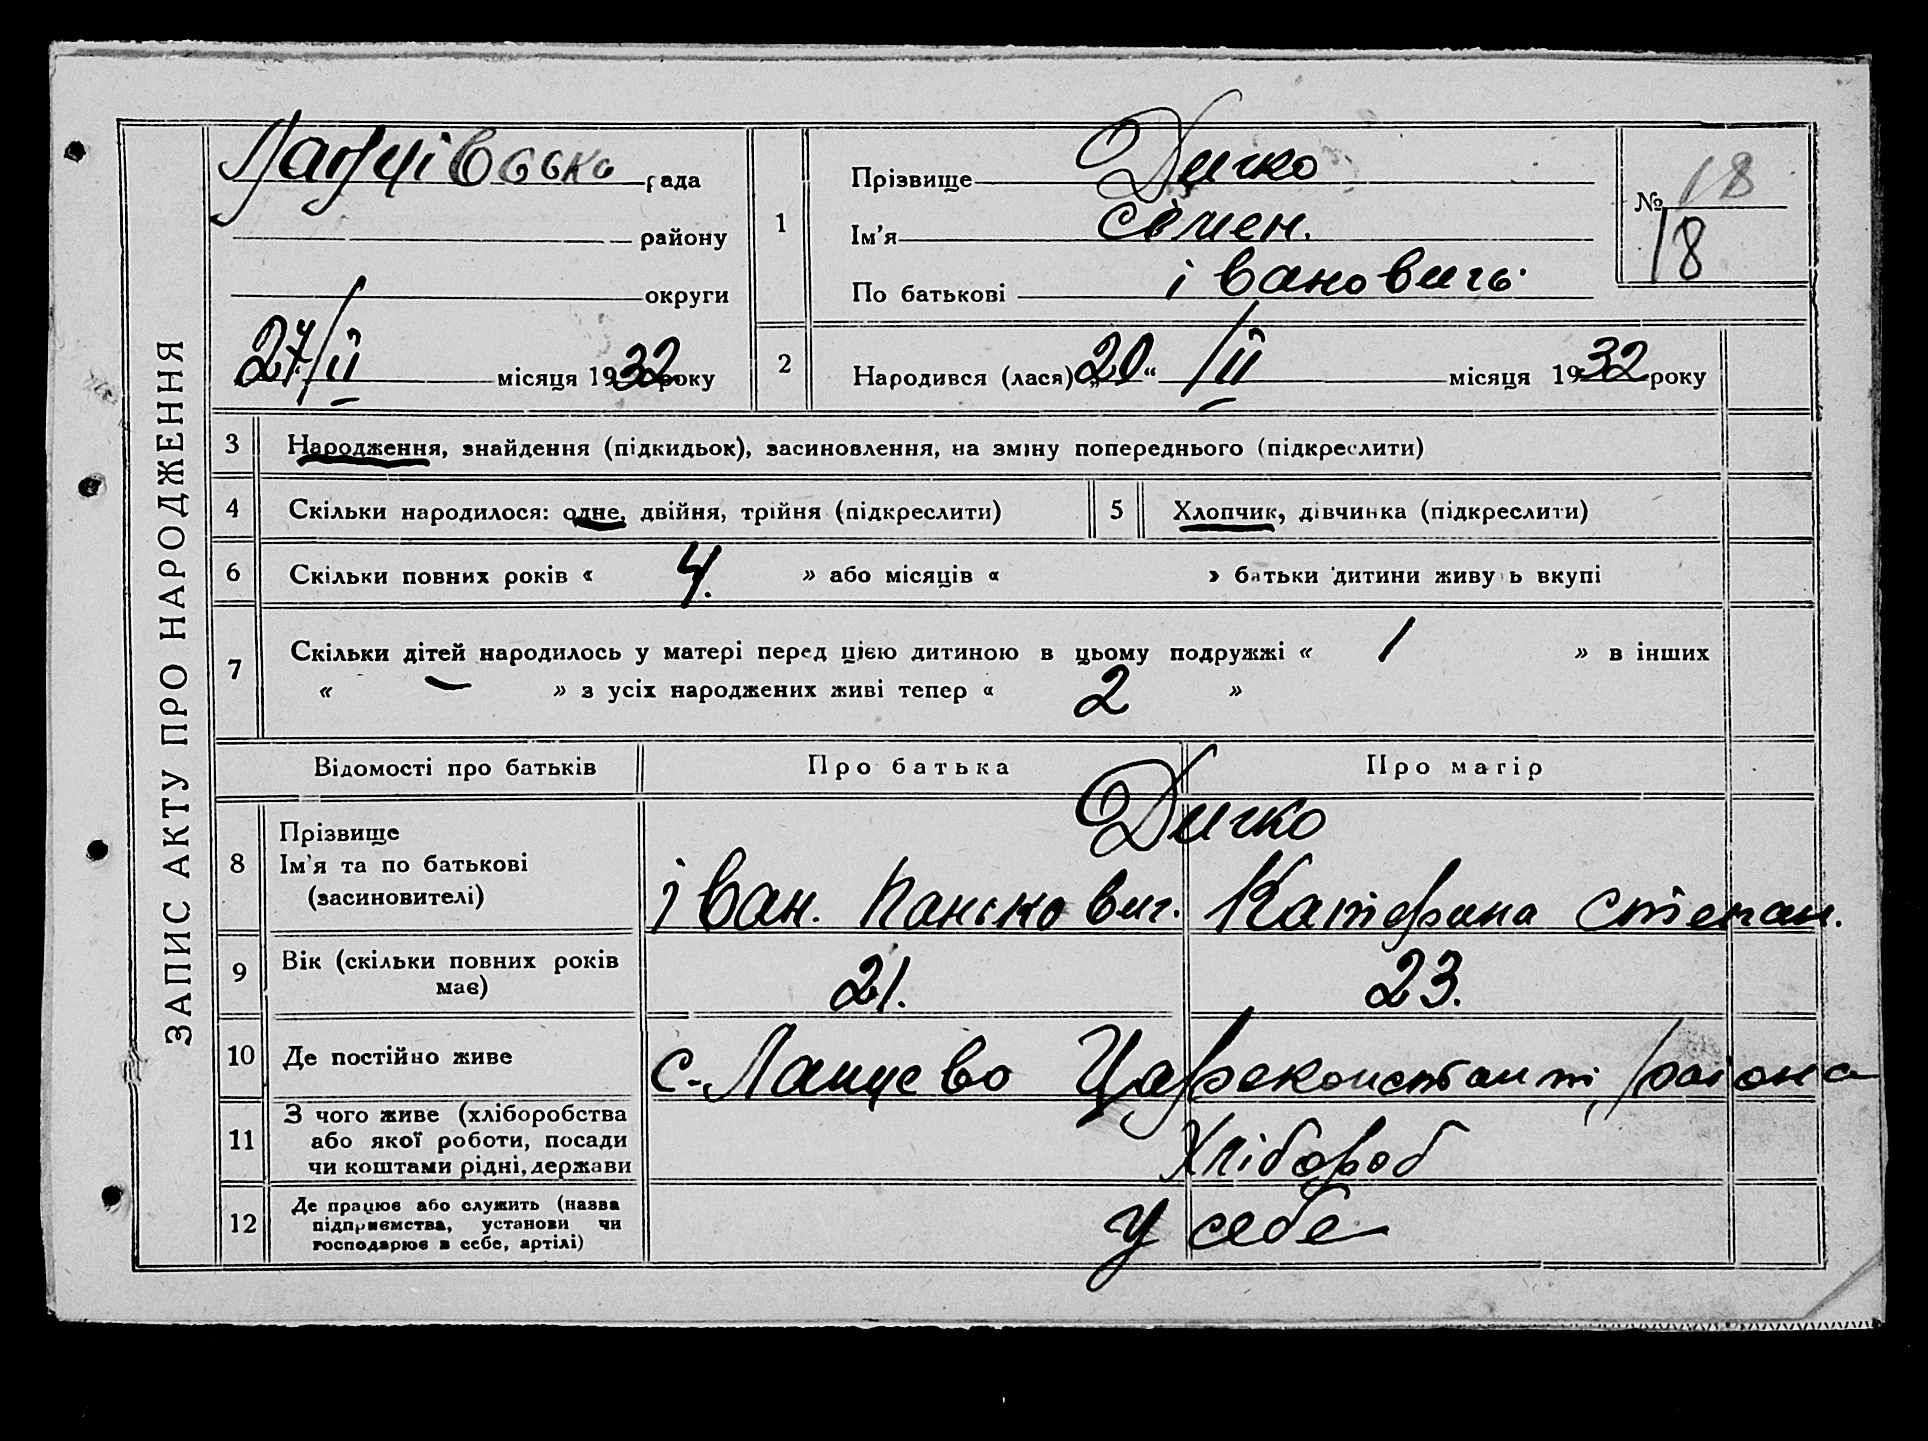 ЗАПИС АКТУ ПРО НАРОДЖЕННЯ
рада
району
округи
27/II місяця 1932 року
1
Прізвище Дичко
Ім'я Семен.
По батькові івановичь.
№ 18
18
2
Народився (лася) „20“ /II місяця 1932 року
3 Народження, знайдення (підкидьок), засиновлення, на зміну попереднього (підкреслити)
4 Скільки народилося: одне, двійня, трійня (підкреслити) 5 Хлопчик, дівчинка (підкреслити)
6 Скільки повних років « 4. » або місяців « » батьки дитини живуть вкупі
7 Скільки дітей народилось у матері перед цією дитиною в цьому подружжі « 1 » в інших
« — » з усіх народжених живі тепер « 2 »
Відомості про батьків Про батька Про матір
8 Прізвище
Ім'я та по батькові
(засиновителі)
Дичко
іван. Катерина степан.
9 Вік (скільки повних років
має)
21. 23.
10 Де постійно живе с. Ланцево Цареконстант, района
11 З чого живе (хліборобства
або якої роботи, посади
чи коштами рідні, держави
Хлібороб
12 Де працює або служить (назва
підприємства, установи чи
господарює в себе, артілі)
у себе